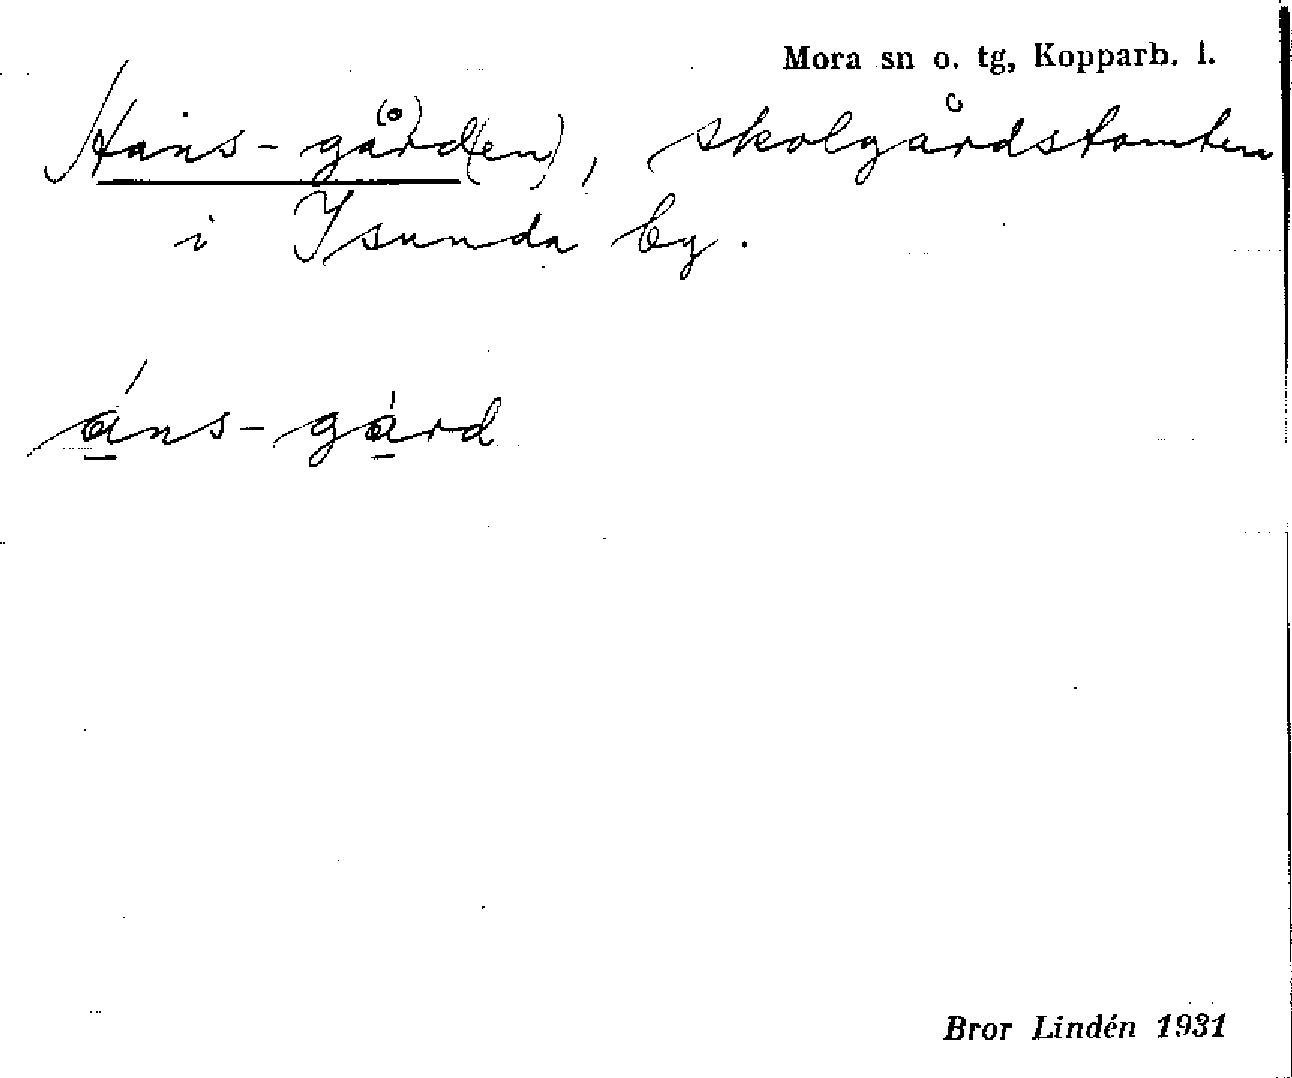 Mora sn o. tg, Kopparb. l.
Hans-gård(en), skolgårdstomten
i Isunda by.
áns-gárd
Bror Lindén 1931